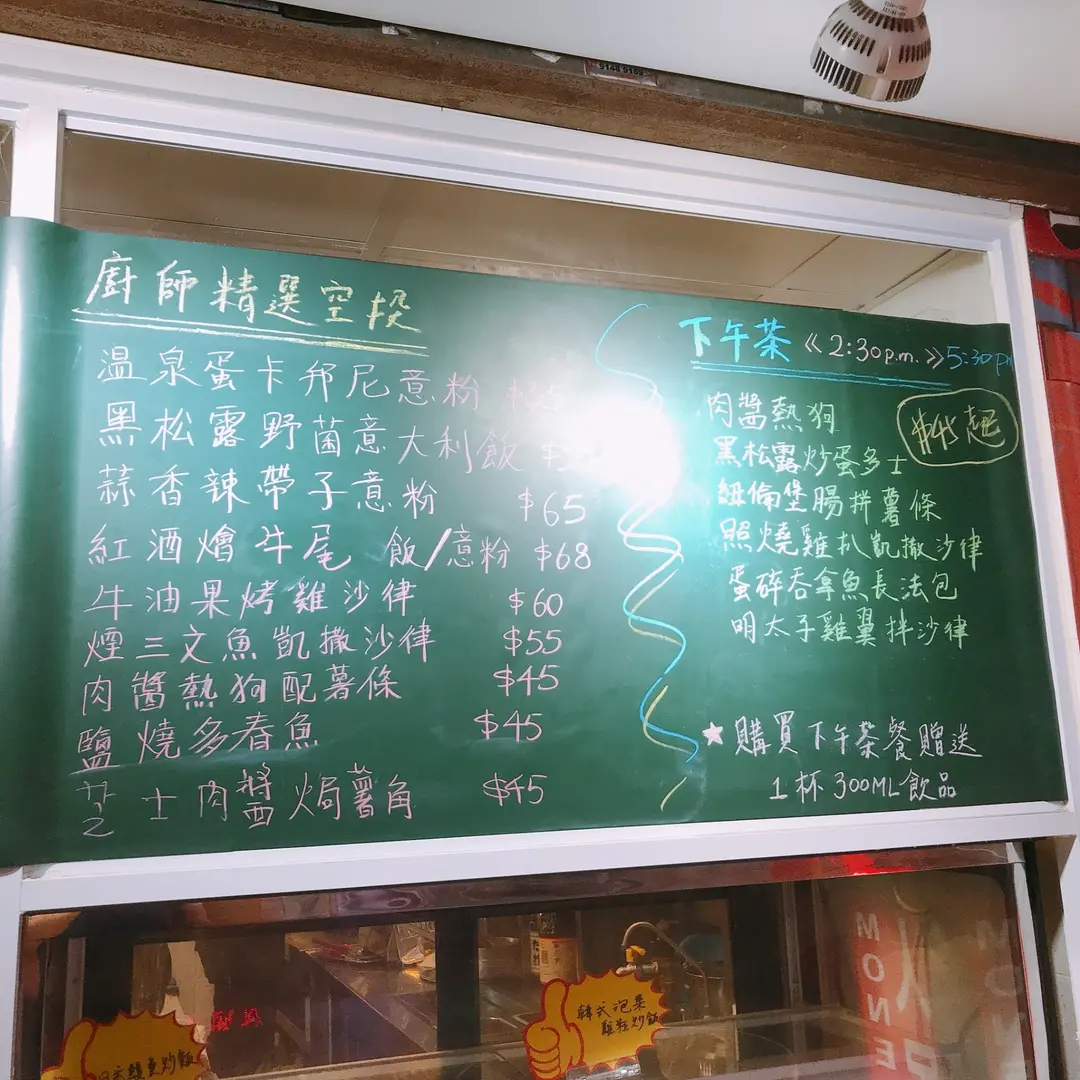 廚師精選空投
温泉蛋卡邦尼意粉
黑松露野菌意大利飯
蒜香辣帶子意粉 $65
紅酒燴牛尾 飯/意粉 $68
牛油果烤雞沙律 $60
煙三文魚凱撒沙律 $55
肉醬熱狗配薯條 $45
鹽燒多春魚 $45
芝士肉醬焗薯角 $45
下午茶 《2:30p.m.》5:30pm
$45起
肉醬熱狗
黑松露炒蛋多士
紐倫堡腸拼薯條
照燒雞扒凱撒沙律
蛋碎吞拿魚長法包
明太子雞翼拌沙律
★購買下午茶餐贈送
1杯300ML飲品
韓式泡菜
炒飯
炒飯
MONE